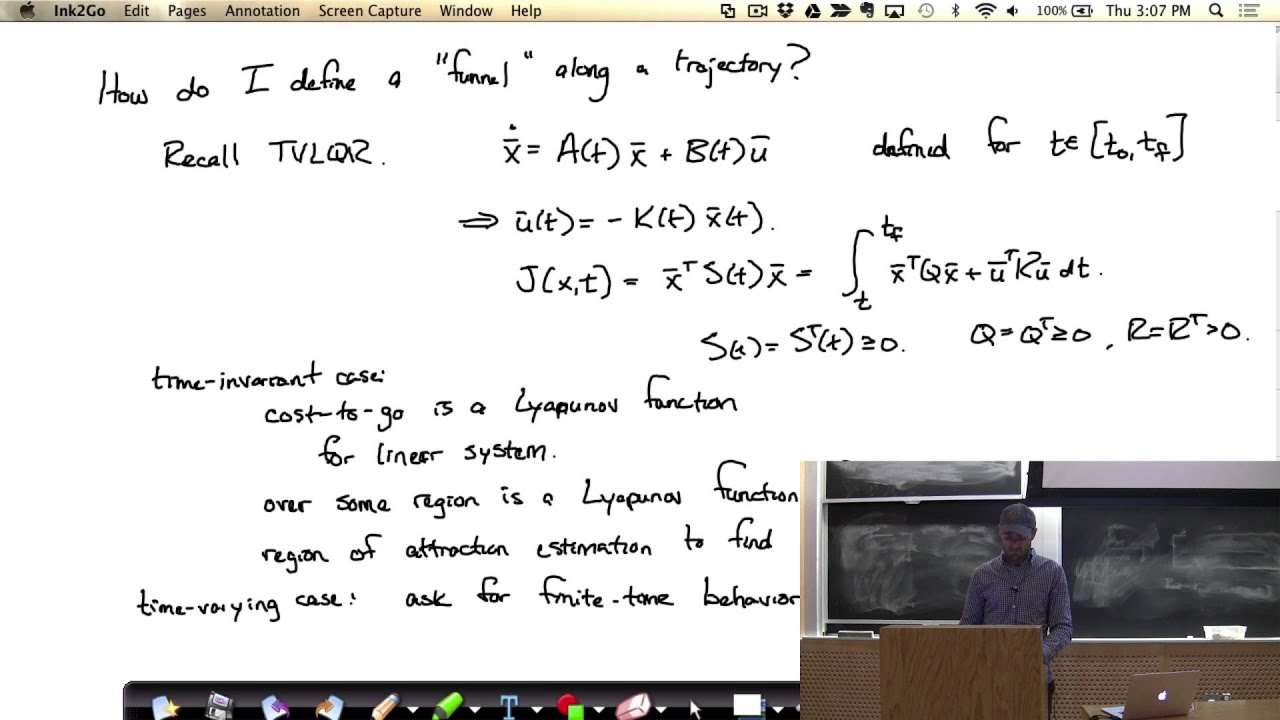 Ink2Go Edit Pages Annotation Screen Capture Window Help 100% Thu 3:07 PM
How do I define a "funnel" along a trajectory?
Recall TVLQR. ẋ̄ = A(t) x̄ + B(t) ū defined for t∈ [t₀, t_f]
⇒ ū(t) = - K(t) x̄(t).
J(x,t) = x̄ᵀ S(t) x̄ = ∫_t^{t_f} x̄ᵀQx̄ + ūᵀRū dt.
S(t) = Sᵀ(t) ≥ 0. Q = Qᵀ ≥ 0, R = Rᵀ > 0.
time-invariant case:
cost-to-go is a Lyapunov function
for linear system.
over some region is a Lyapunov function
region of attraction estimation to find
time-varying case: ask for finite-time behavior
T